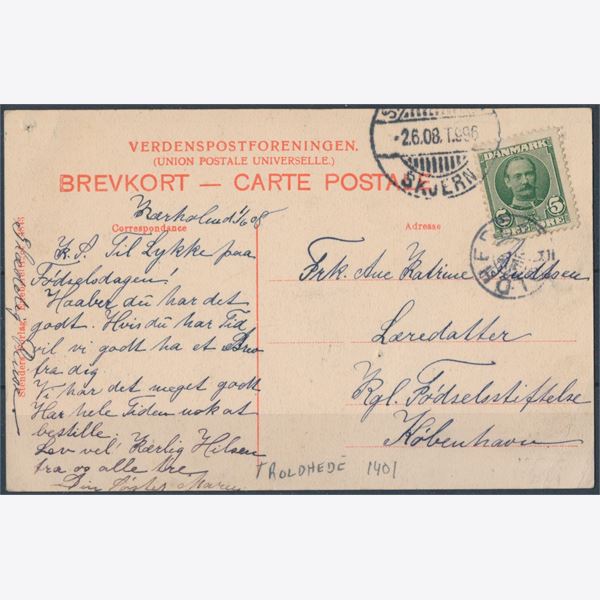 VERDENSPOSTFORENINGEN.
(UNION POSTALE UNIVERSELLE.)
BREVKORT — CARTE POSTALE
2.6.08. T.996
SKJERN
DANMARK
5 5
Kærholm d 1/6 08
Correspondance
Adresse
K. S. Til Lykke paa
Fødselsdagen!
Haaber du har det
godt. Hvis du har Tid
vil vi godt ha et Brev
fra dig.
Vi har det meget godt.
Har hele Tiden nok at
bestille.
Lev vel! Kærlig Hilsen
fra og alle tre
Din Søster Maren
Frk. Ane Katrine
Læredatter
Kgl. Fødselsstiftelse
København
TROLDHEDE 1401
Stenders Forlag.